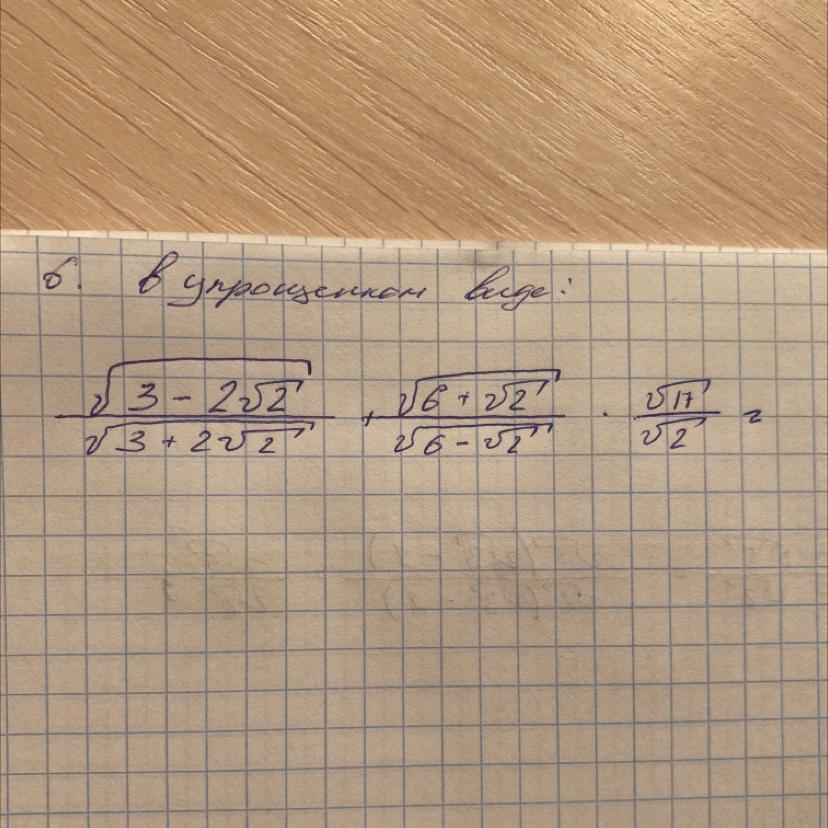 б. в упрощенном виде:
√(3 - 2√2) / √(3 + 2√2) + √(6 + √2) / √(6 - √2) · √17 / √2 =